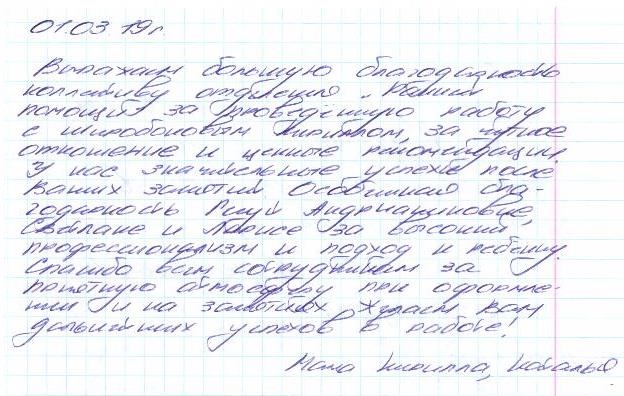 01.03.19г.
Выражаем большую благодарность
коллективу отделения „Ранней
помощи" за проведенную работу
с Кириллом, за чуткое
отношение и ценные рекомендации.
У нас значительные успехи после
Ваших занятий. Особенная бла-
годарность Андриановне,
Светлане и Ларисе за высокий
профессионализм и подход к ребенку.
Спасибо всем сотрудникам за
приятную атмосферу при оформле-
нии и на занятиях. Желаем Вам
дальнейших успехов в работе!
Мама Кирилла, Наталья